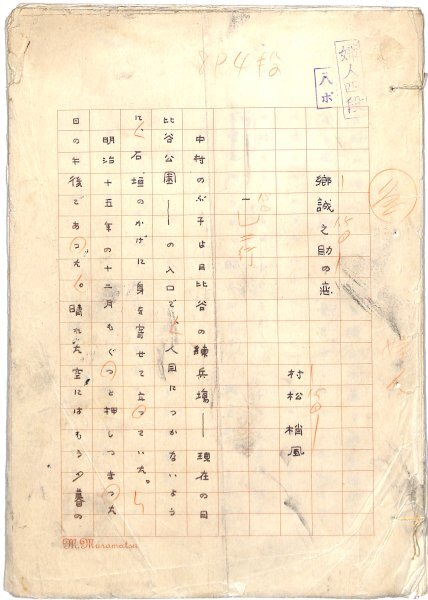 婦人四段
六ポ
8P4段
郷誠之助の恋
村松梢風
一
中村のぶ子は日比谷の練兵場――現在の日
比谷公園――の入口で、人目につかないよう
に、石垣のかげに身を寄せて立つてい太。
明治十五年の十二月もぐつと押しつまつ太
日の午後であつ太。晴れ太空にはもう夕暮の
M. Muramatsu